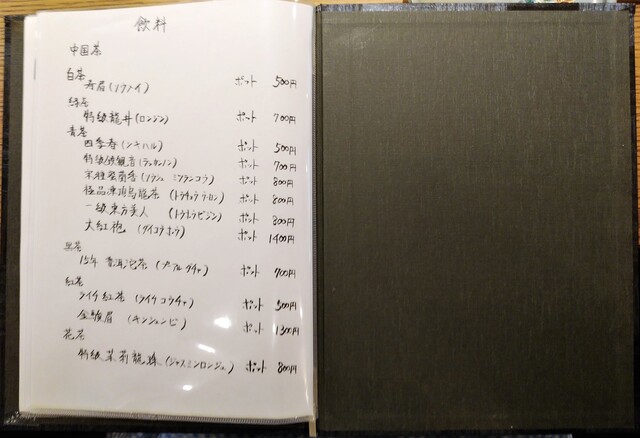 飲料
中国茶
白茶
寿眉 ポット 500円
緑茶
特級龍井(ロンジン) ポット 700円
青茶
四季春(シキハル) ポット 500円
特級鉄観音(テッカンノン) ポット 700円
ポット 800円
極品凍頂烏龍茶 ポット 800円
一級東方美人 ポット 800円
大紅袍(ダイコウホウ) ポット 1400円
黒茶
15年 普洱沱茶(プーアルダチャ) ポット 700円
紅茶
ライチ紅茶(ライチコウチャ) ポット 500円
金駿眉(キンシュンビ) ポット 1300円
花茶
特級茉莉龍珠 ポット 800円